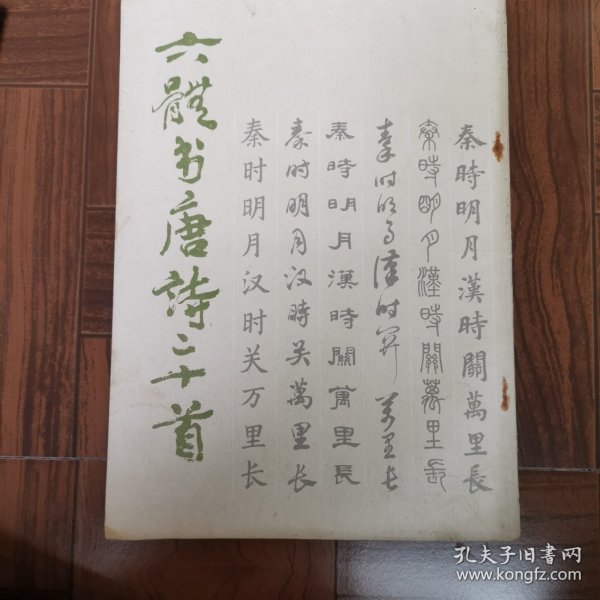 六體书唐詩二十首
秦時明月漢時關萬里長
秦時明月漢時關萬里長
秦时明月漢时關万里长
秦時明月漢時關萬里長
秦时明月汉時关萬里长
秦时明月汉时关万里长
孔夫子旧书网
www.kongfz.com